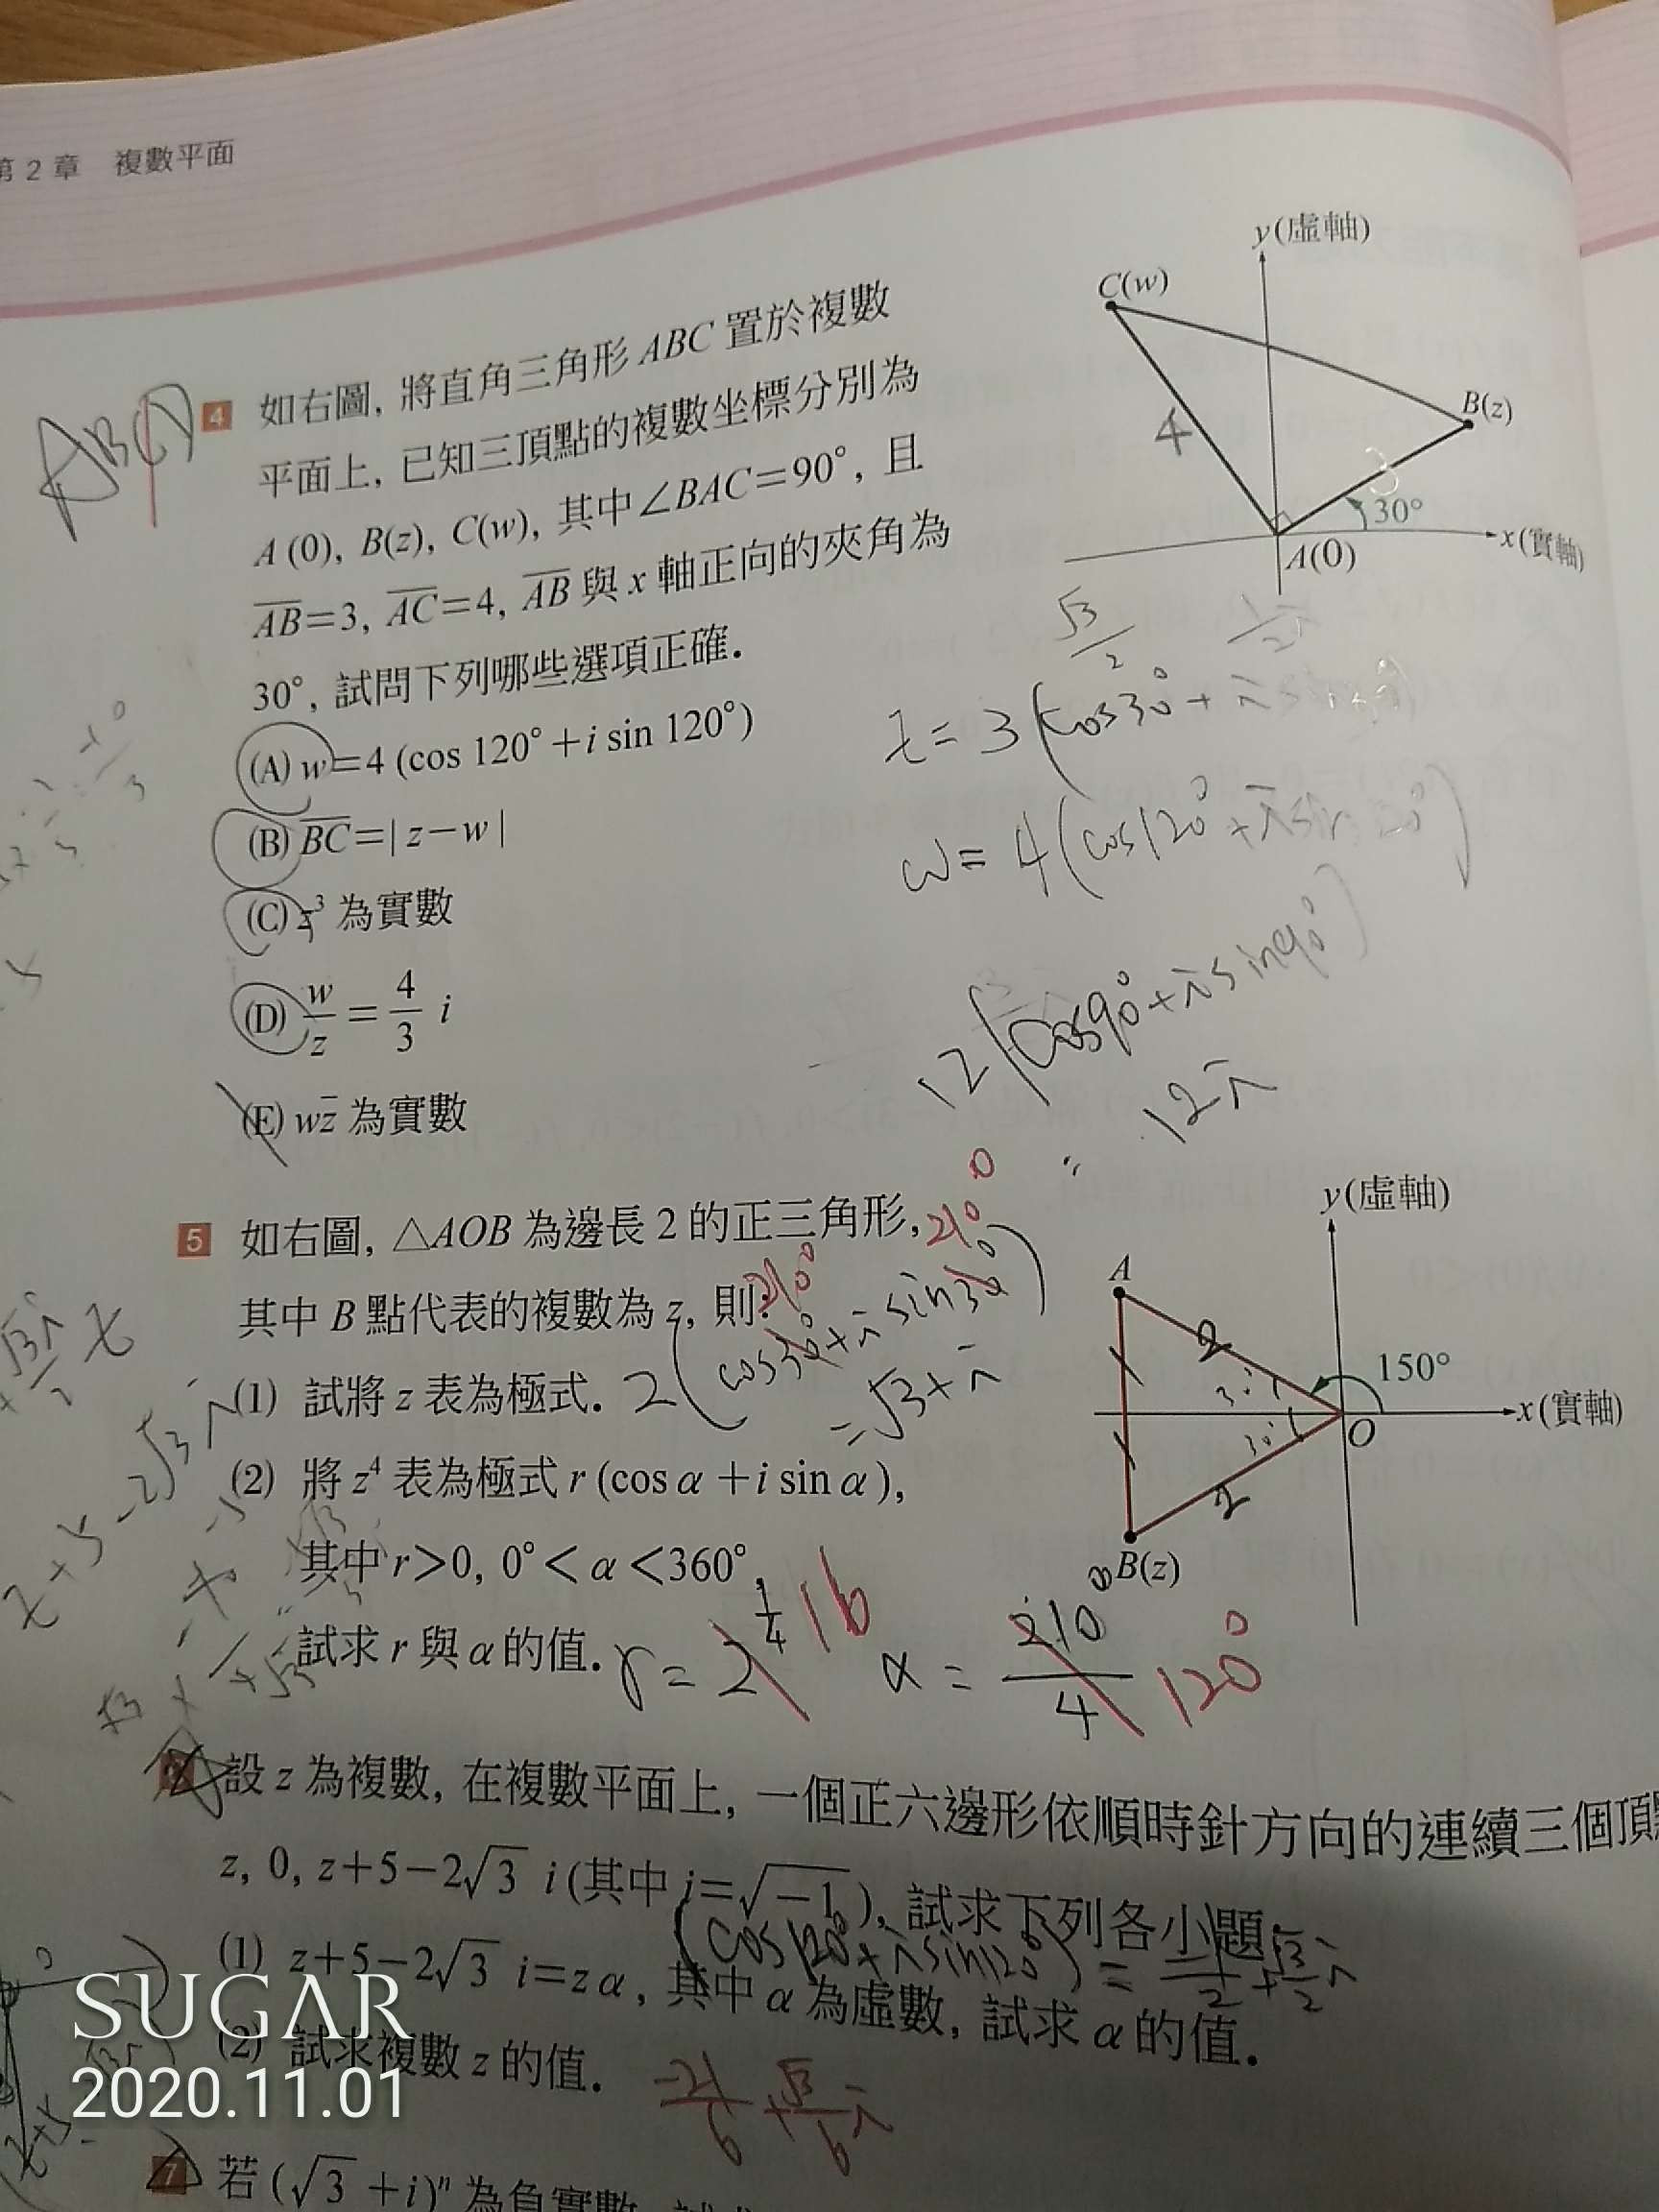 第2章 複數平面
y(虛軸)
C(w)
B(z)
4
3
30°
x(實軸)
A(0)
ABCD
4 如右圖, 將直角三角形 ABC 置於複數
平面上, 已知三頂點的複數坐標分別為
A(0), B(z), C(w), 其中∠BAC=90°, 且
AB=3, AC=4, AB 與 x 軸正向的夾角為
30°, 試問下列哪些選項正確.
(A) w=4 (cos 120°+i sin 120°)
(B) BC=|z−w|
(C) z³ 為實數
(D) w/z = 4/3 i
(E) wz̄ 為實數
√3/2
z=3(cos30°+i
w=4(cos120°+i sin120°)
12(cos90°+i sin90°)
12i
5 如右圖, △AOB 為邊長 2 的正三角形,
其中 B 點代表的複數為 z, 則:
(1) 試將 z 表為極式.
2(cos30°+i sin30°)
210°
210°
=√3+i
(2) 將 z⁴ 表為極式 r (cos α+i sin α),
其中 r>0, 0°<α<360°,
試求 r 與 α 的值.
r=2^1/4 16 α=210/4 120°
y(虛軸)
A
2
150°
x(實軸)
O
2
B(z)
設 z 為複數, 在複數平面上, 一個正六邊形依順時針方向的連續三個頂
z, 0, z+5−2√3 i (其中 i=√−1), 試求下列各小題.
(cos120°+i sin120°) = −1/2+√3/2 i
(1) z+5−2√3 i=zα, 其中 α 為虛數, 試求 α 的值.
(2) 試求複數 z 的值.
−21/6+√3/6 i
7 若 (√3+i)ⁿ 為負實數
SUGAR
2020.11.01